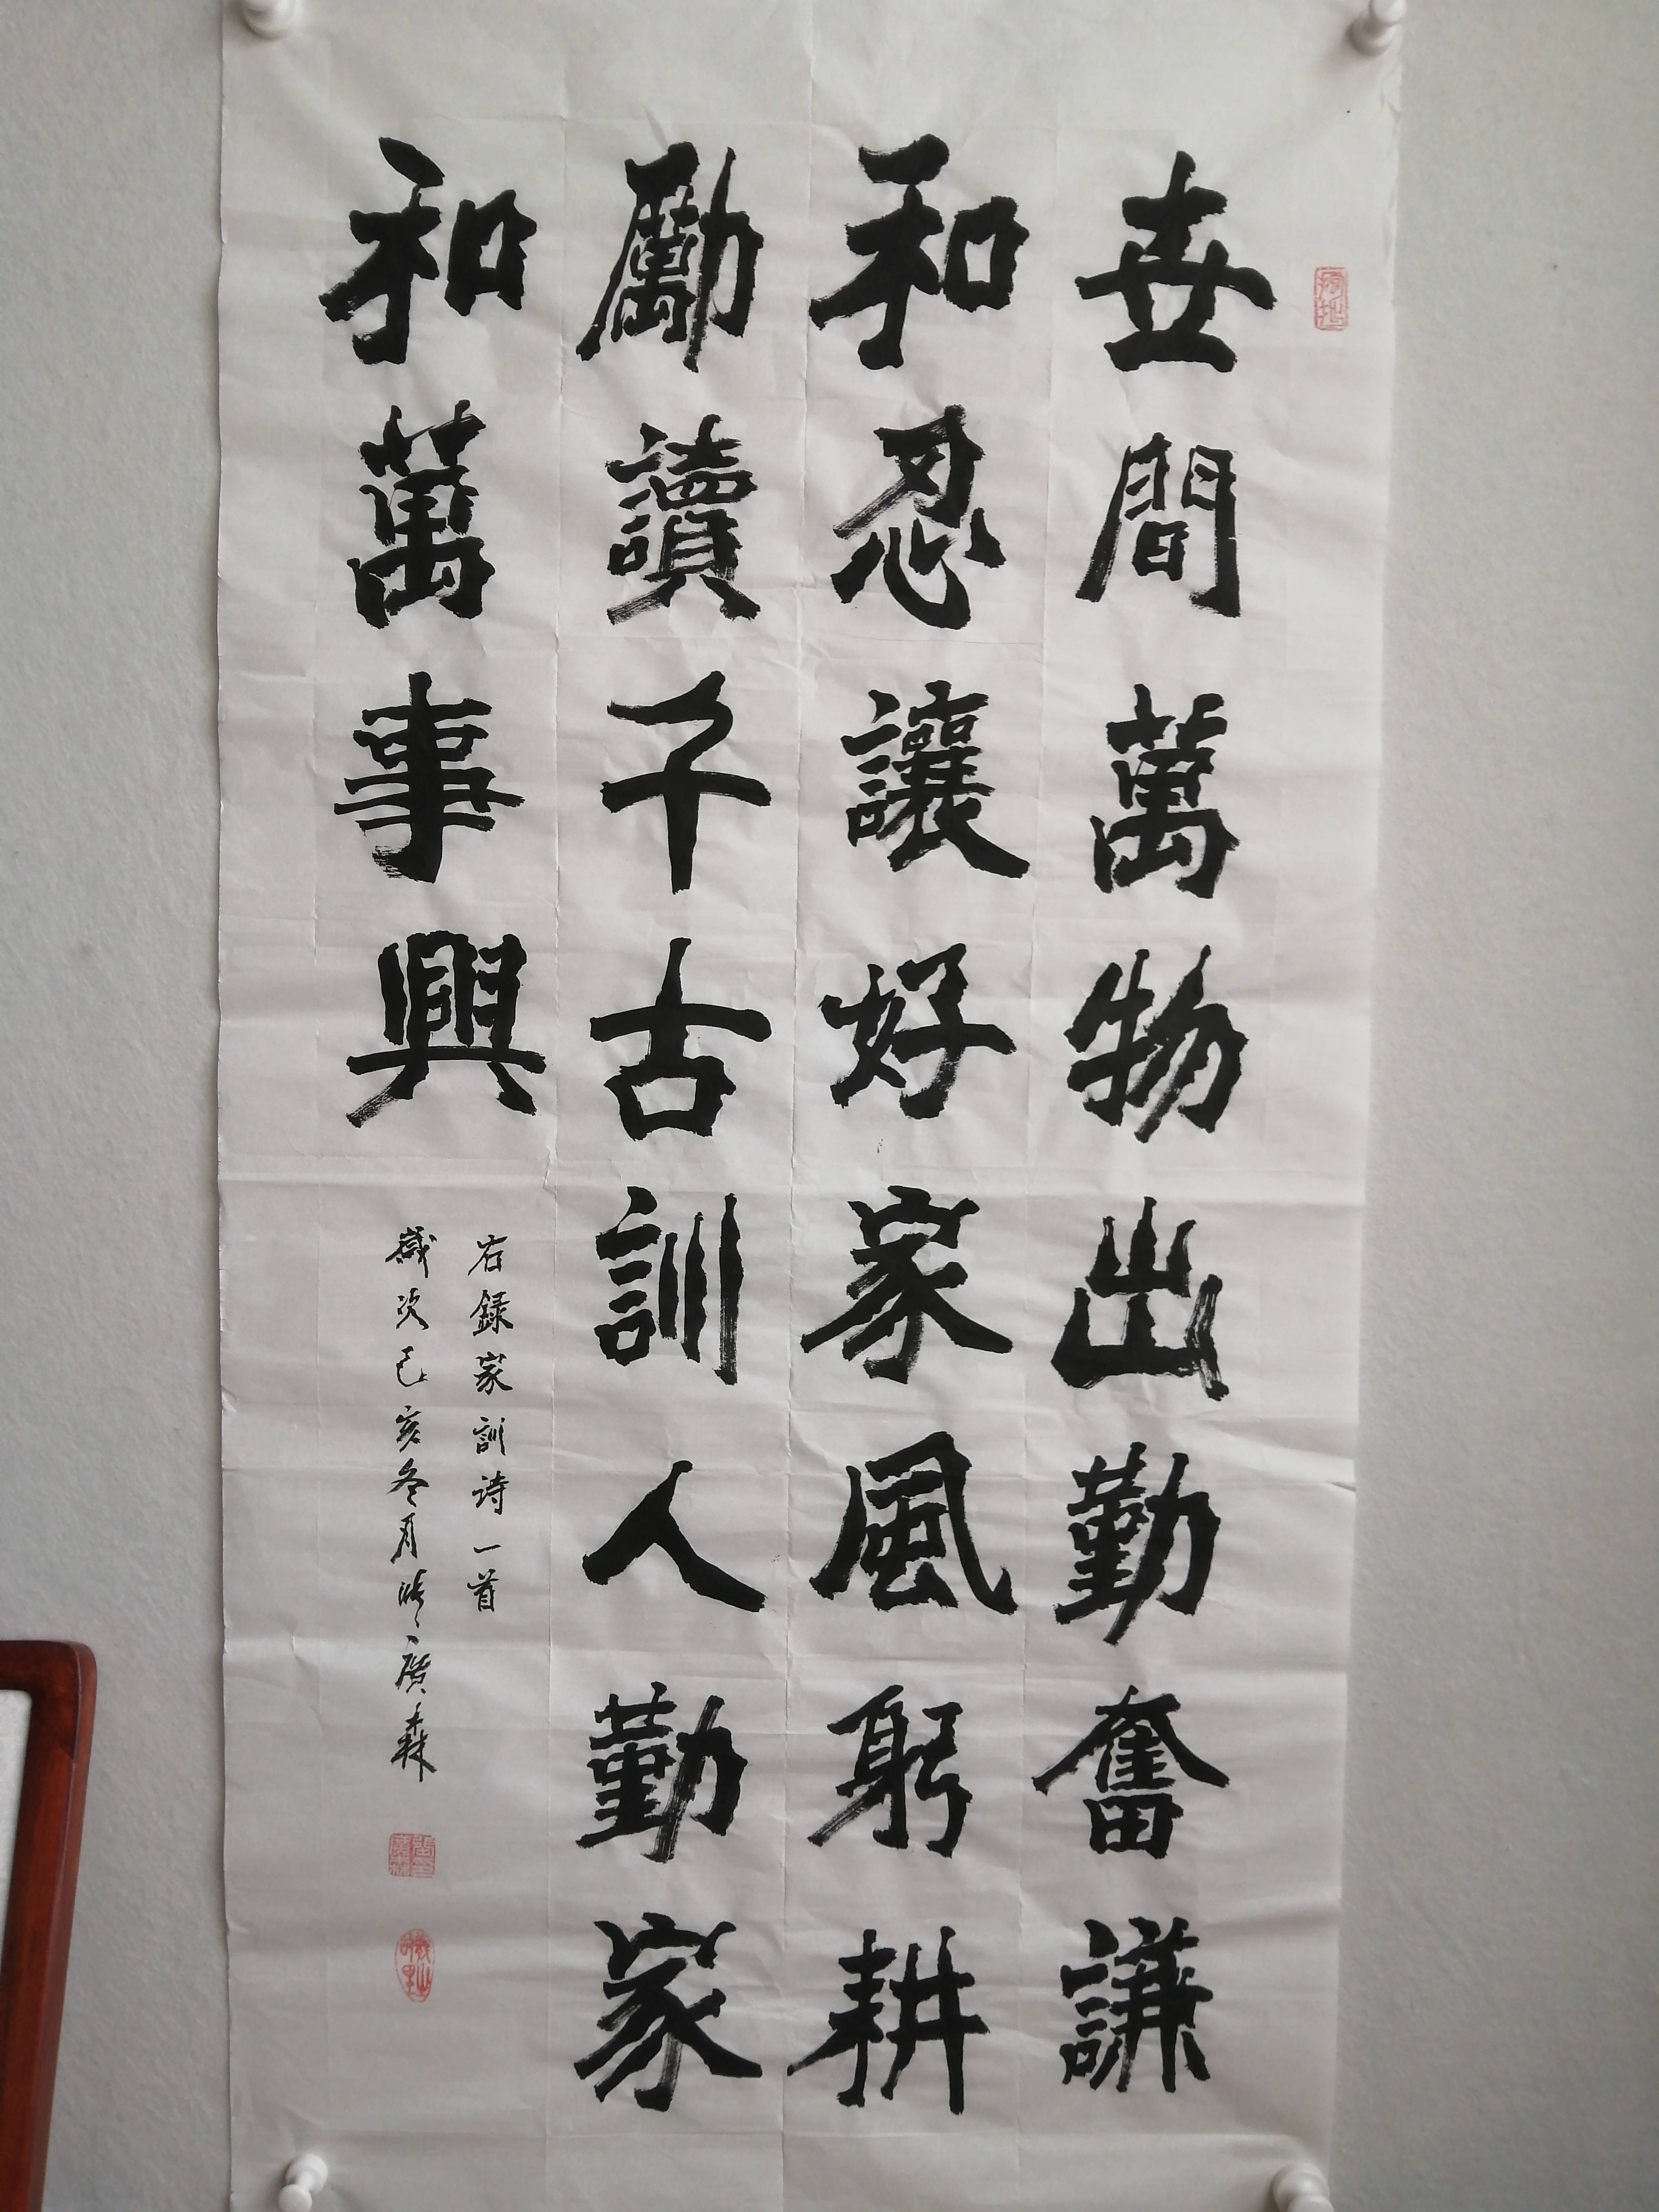 世間萬物出勤奮謙
和忍讓好家風躬耕
勵讀千古訓人勤家
和萬事興
右録家訓诗一首
歲次己亥冬月 廣森